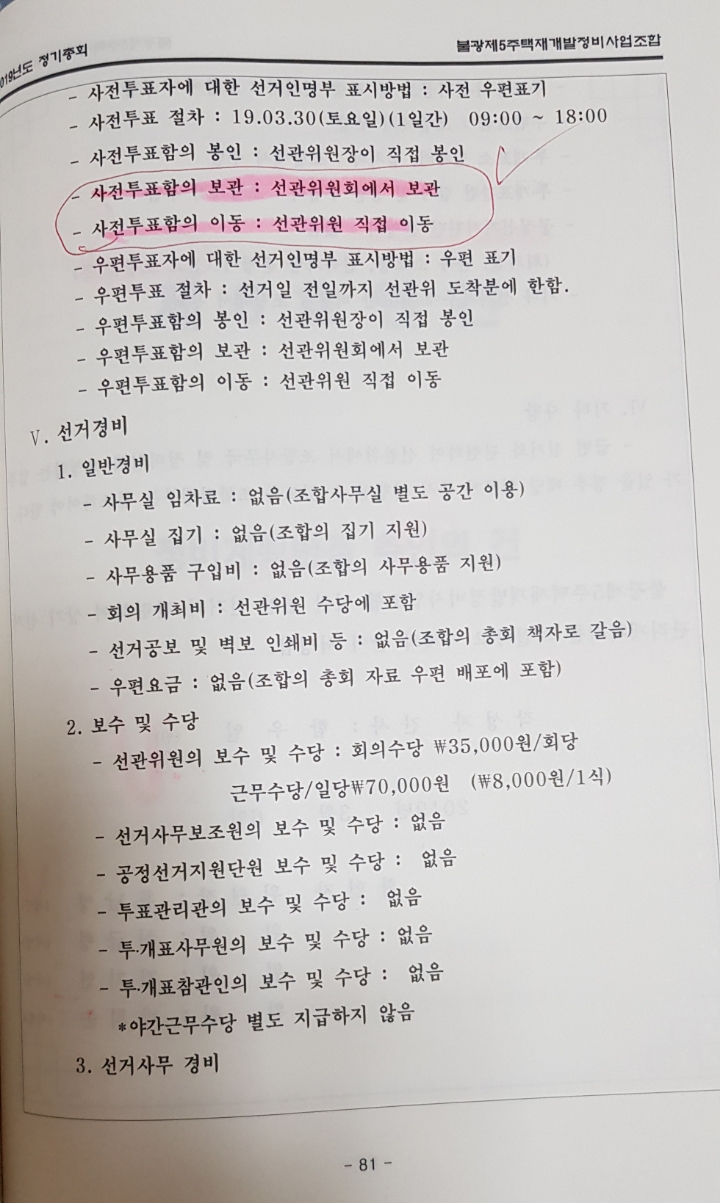 2019년도 정기총회
불광제5주택재개발정비사업조합
- 사전투표자에 대한 선거인명부 표시방법 : 사전 우편표기
- 사전투표 절차 : 19.03.30(토요일)(1일간) 09:00 ~ 18:00
- 사전투표함의 봉인 : 선관위원장이 직접 봉인
- 사전투표함의 보관 : 선관위원회에서 보관
- 사전투표함의 이동 : 선관위원 직접 이동
- 우편투표자에 대한 선거인명부 표시방법 : 우편 표기
- 우편투표 절차 : 선거일 전일까지 선관위 도착분에 한함.
- 우편투표함의 봉인 : 선관위원장이 직접 봉인
- 우편투표함의 보관 : 선관위원회에서 보관
- 우편투표함의 이동 : 선관위원 직접 이동
V. 선거경비
1. 일반경비
- 사무실 임차료 : 없음(조합사무실 별도 공간 이용)
- 사무실 집기 : 없음(조합의 집기 지원)
- 사무용품 구입비 : 없음(조합의 사무용품 지원)
- 회의 개최비 : 선관위원 수당에 포함
- 선거공보 및 벽보 인쇄비 등 : 없음(조합의 총회 책자로 갈음)
- 우편요금 : 없음(조합의 총회 자료 우편 배포에 포함)
2. 보수 및 수당
- 선관위원의 보수 및 수당 : 회의수당 ₩35,000원/회당
근무수당/일당₩70,000원 (₩8,000원/1식)
- 선거사무보조원의 보수 및 수당 : 없음
- 공정선거지원단원 보수 및 수당 : 없음
- 투표관리관의 보수 및 수당 : 없음
- 투·개표사무원의 보수 및 수당 : 없음
- 투·개표참관인의 보수 및 수당 : 없음
*야간근무수당 별도 지급하지 않음
3. 선거사무 경비
- 81 -